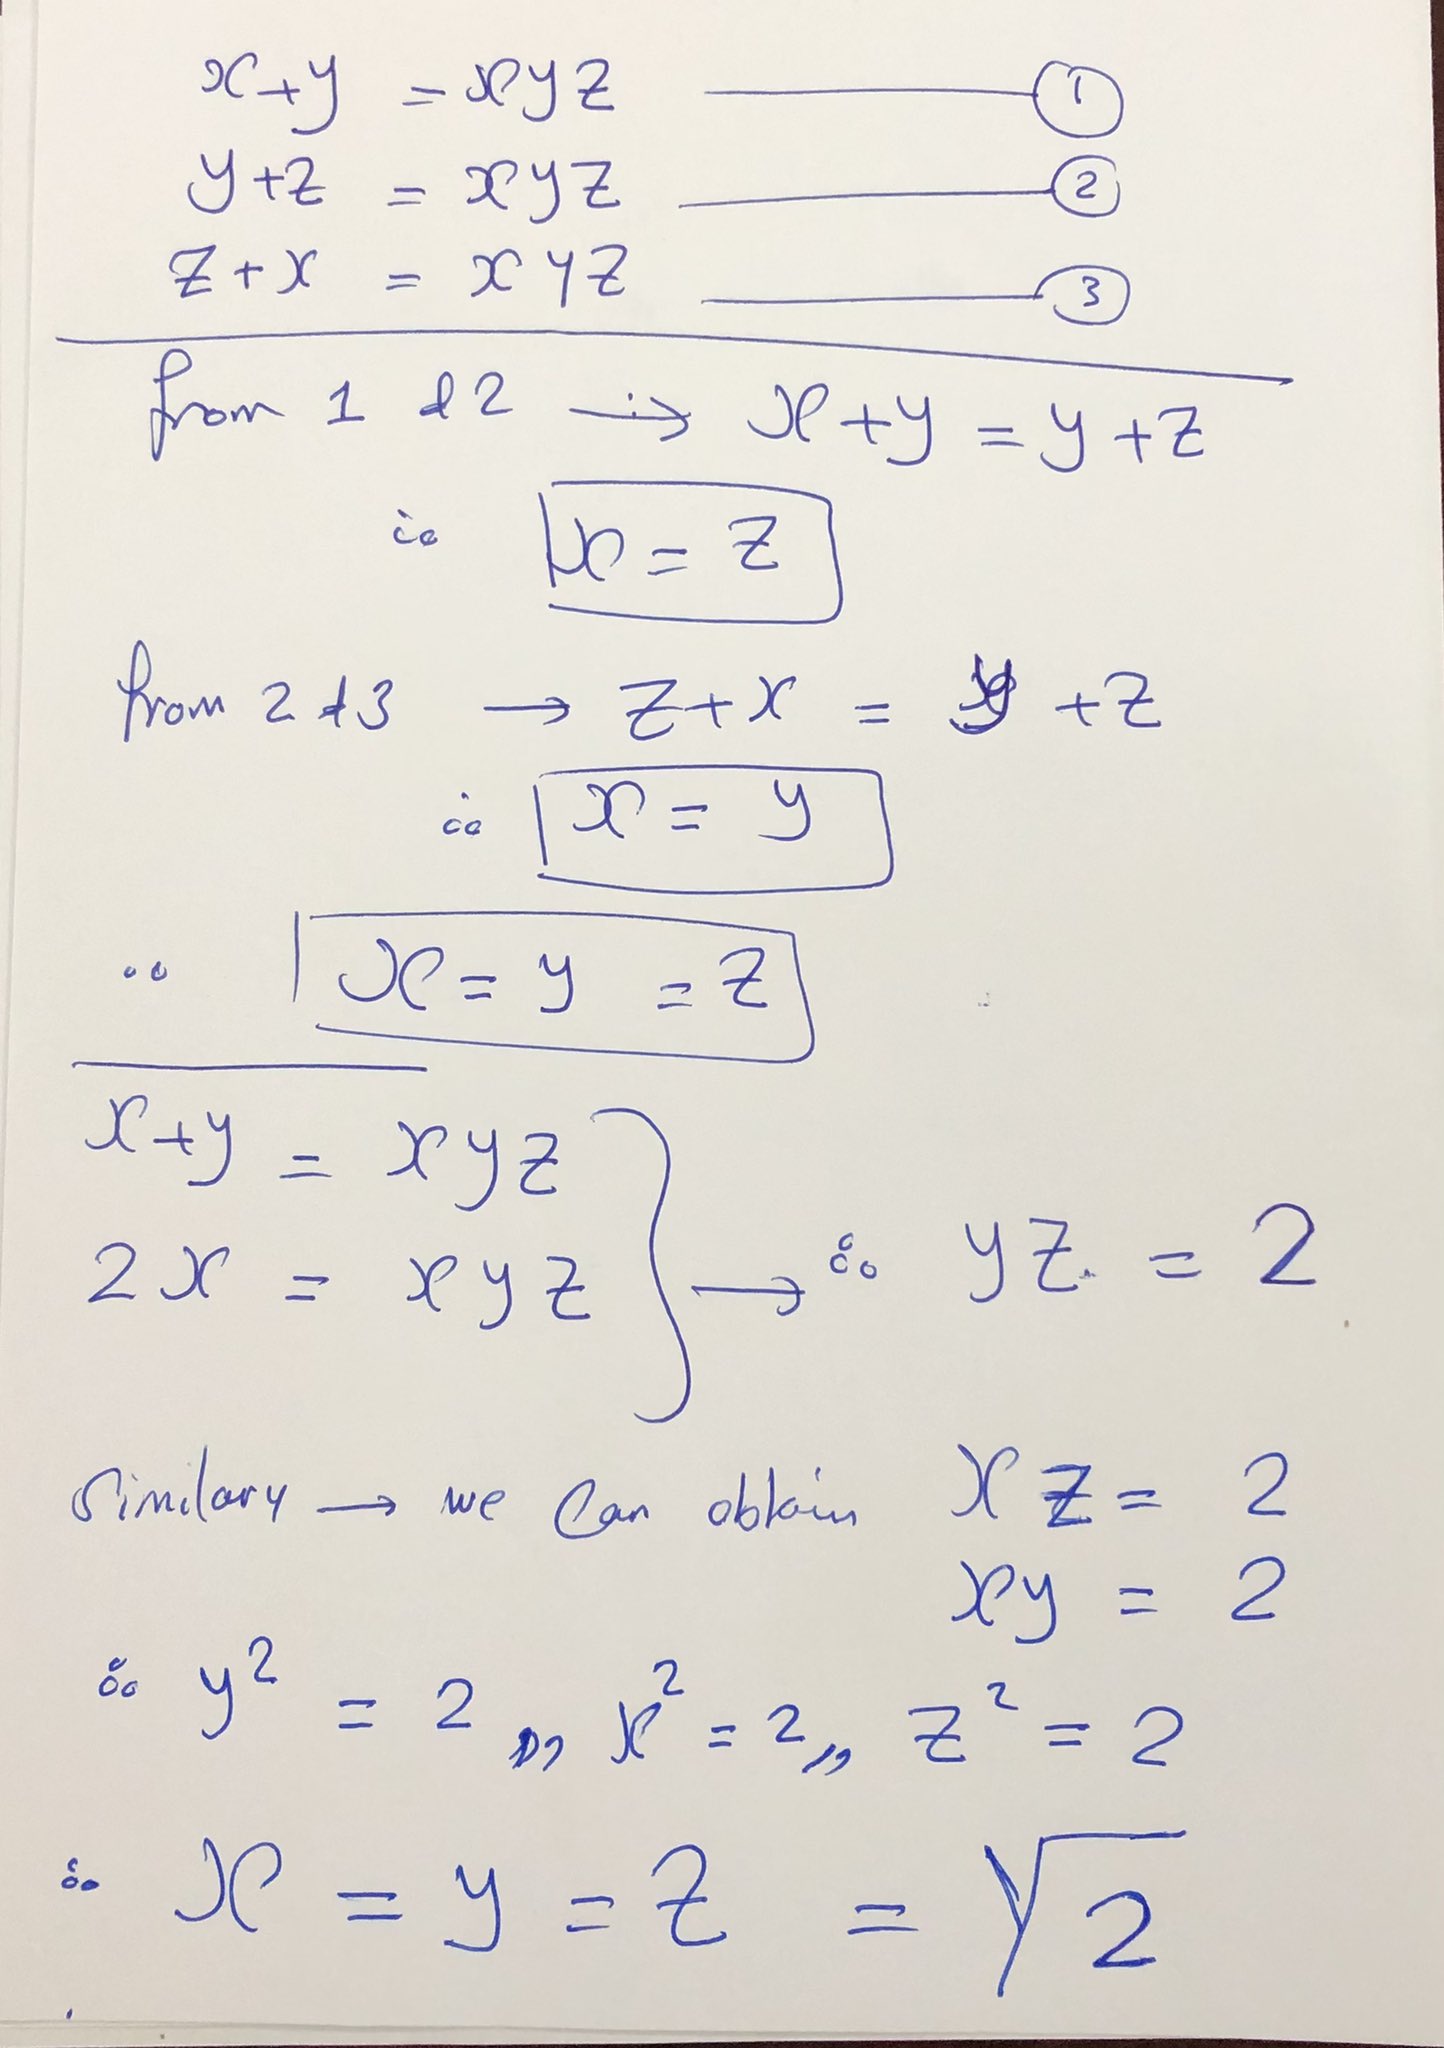 x+y = xyz ——— ①
y+z = xyz ——— ②
z+x = xyz ——— ③
from 1 & 2 → x+y = y+z
∴ x = z
from 2 & 3 → z+x = y+z
∴ x = y
∴ x = y = z
x+y = xyz
2x = xyz } → ∴ yz = 2
Similary → we can obtain xz = 2
xy = 2
∴ y² = 2 ,, x² = 2 ,, z² = 2
∴ x = y = z = √2